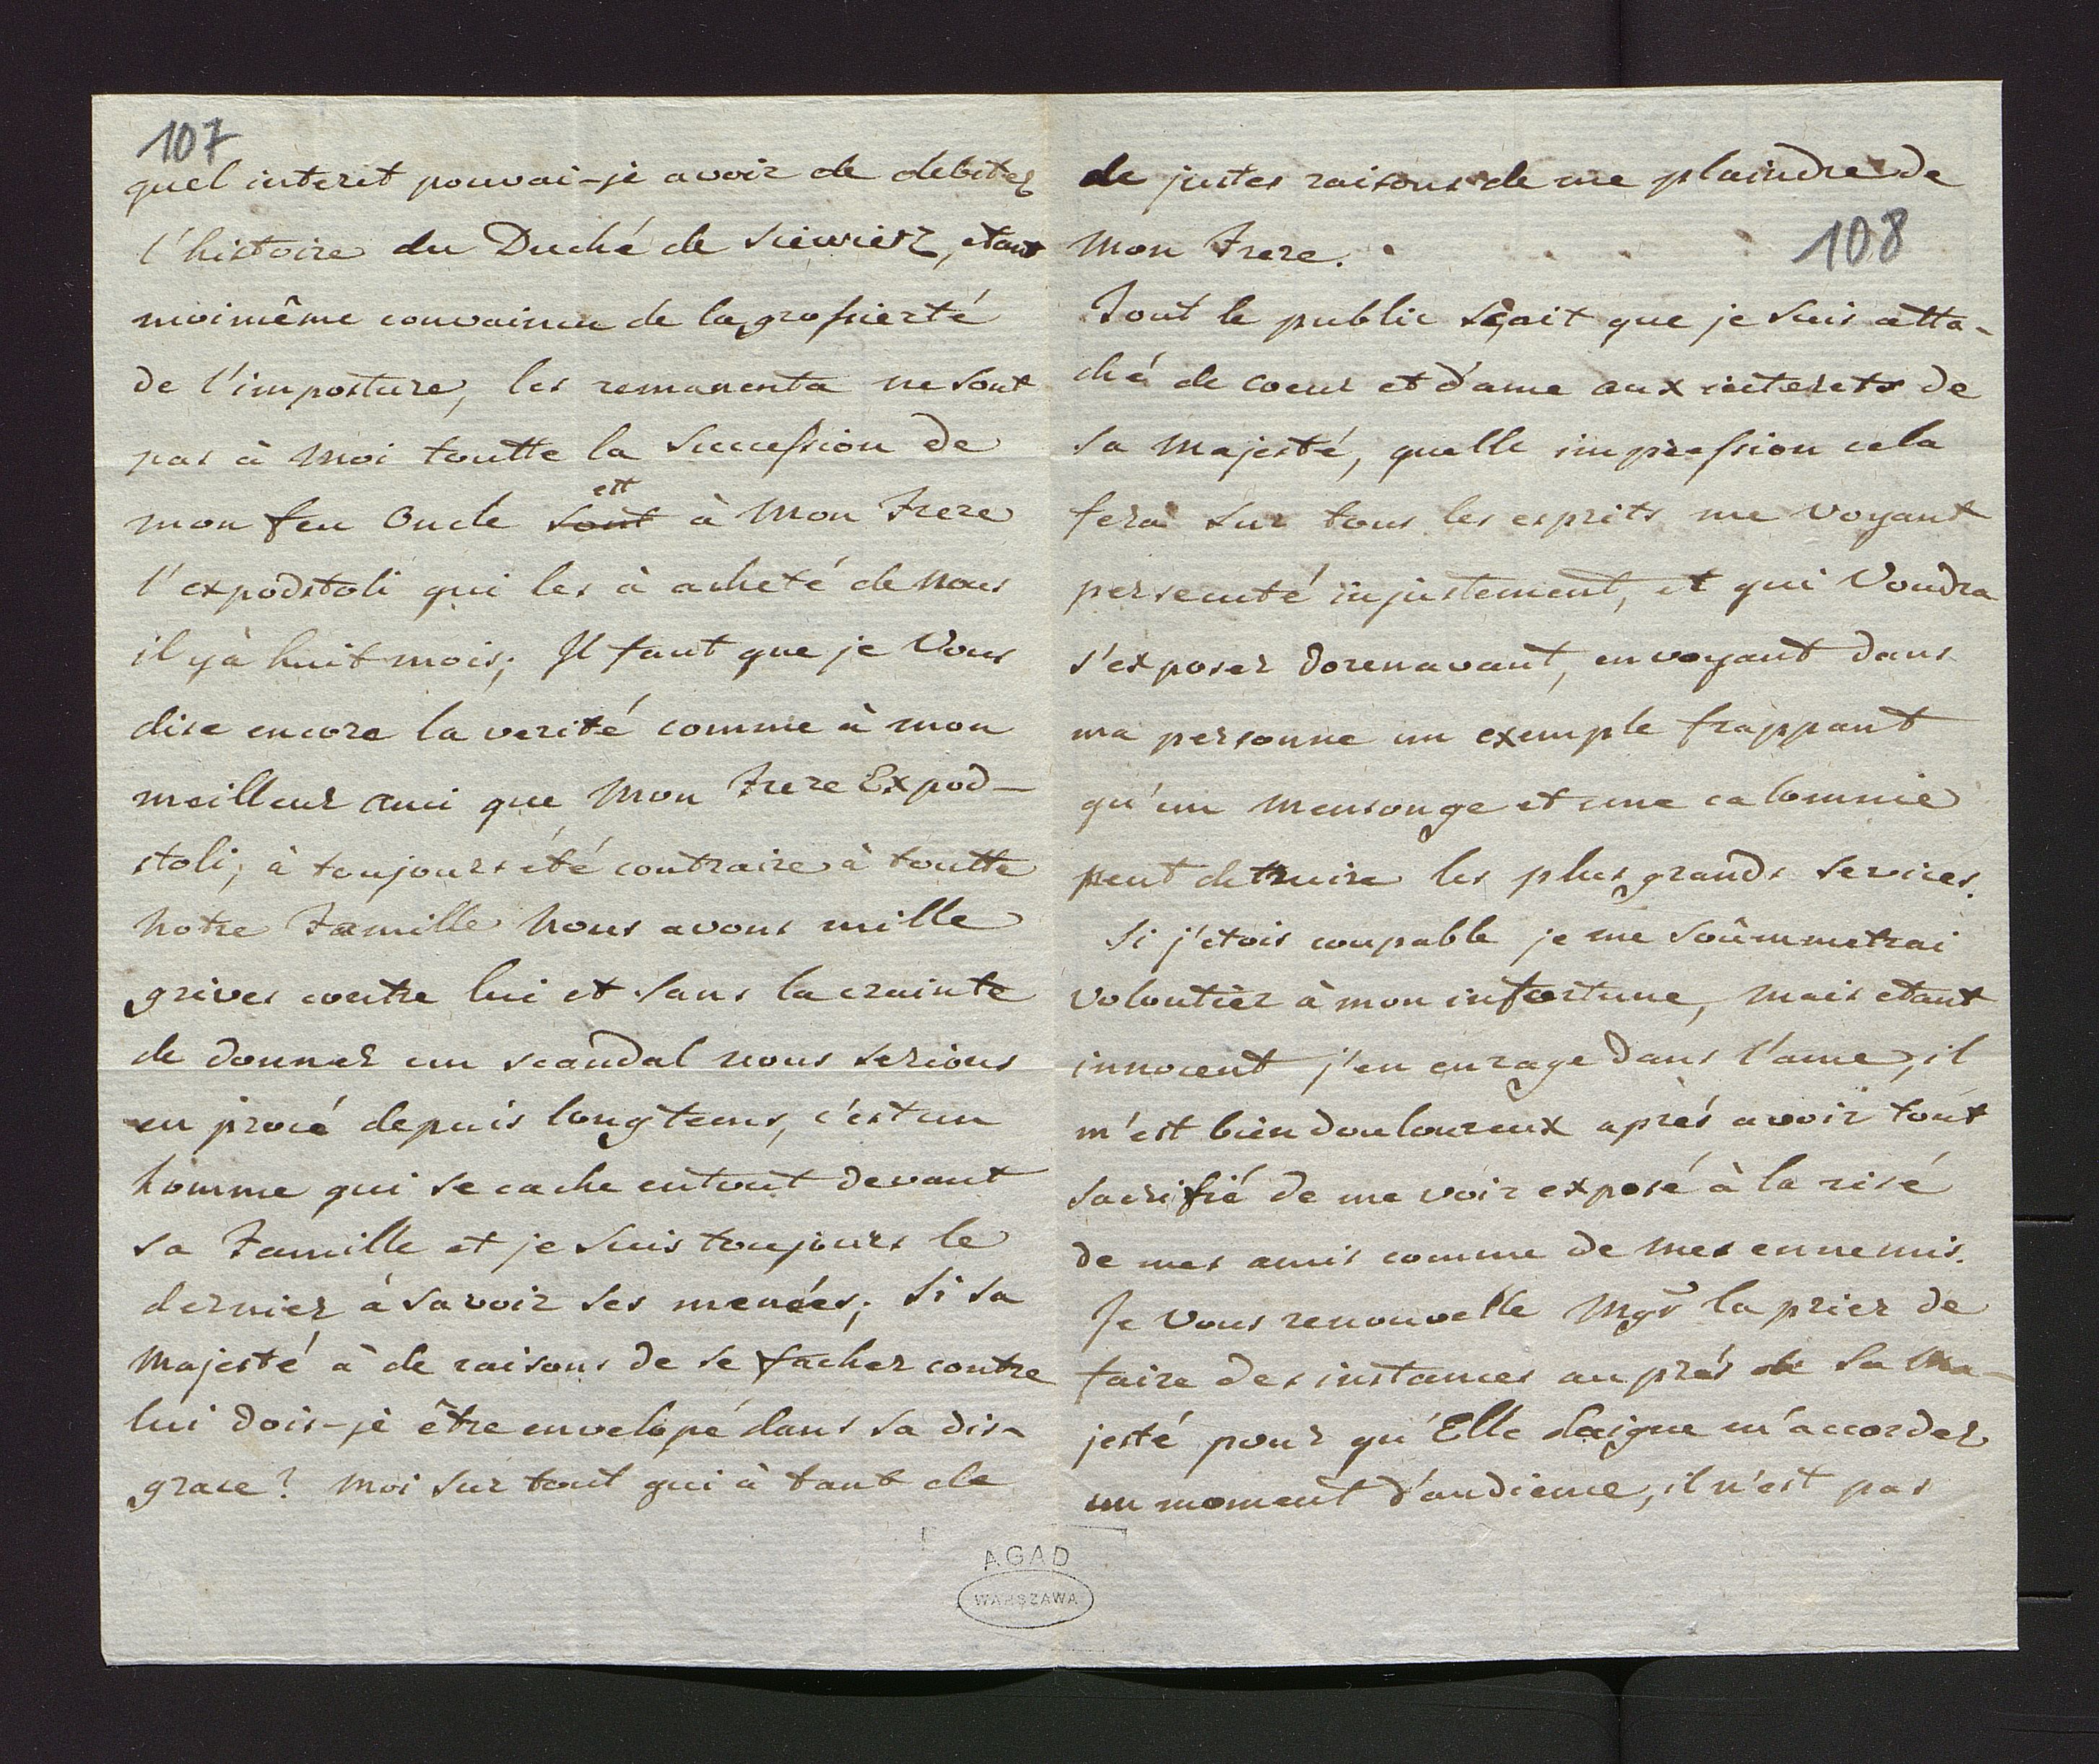 107
quel interet pouvai-je avoir de debiter
l'histoire du Duché de Siewierz, etant
moimême convaincu de la grossierté
de l'imposture, les remanenta ne sont
pas à moi toutte la Succession de
est
mon feu Oncle sont à Mon Frere
l'expodstoli qui les à acheté de nous
il yà huit mois; Il faut que je Vous
dise encore la verité comme à mon
meilleur ami que Mon Frere Expod-
stoli, à toujours été contraire à toutte
notre Famille nous avons mille
grives contre lui et sans la crainte
de donner un scandal nous serions
en procé depuis longtems, c'est un
homme qui se cache entout devant
sa Famille et je suis toujours le
dernier à savoir ses menées; Si sa
Majesté à de raisons de se facher contre
lui dois-je être envelopé dans sa dis-
grace? Moi sur tout qui à tant de
de justes raisons de me plaindre de
Mon Frere.
108
Tout le public sçait que je suis atta-
ché de coeur et d'ame aux interets de
sa Majesté, quelle impression cela
fera sur tous les esprits me voyant
persecuté injustement, et qui Voudra
s'exposer dorenavant, en voyant dans
ma personne un exemple frappant
qu'un mensonge et une calomnie
peut detruire les plus grands services.
Si j'etois coupable je me soûmmetrai
volontier à mon infortune, mais etant
innocent j'en enrage dans l'ame, il
m'est bien douloureux aprés avoir tout
sacrifié de me voir exposé à la risé
de mes amis comme de mes ennemis.
Je Vous renouvelle Mgr la prier de
faire des instances au prés de Sa Ma-
jesté pour qu'Elle daigne m'accorder
un moment d'audience, il n'est pas
AGAD
WARSZAWA